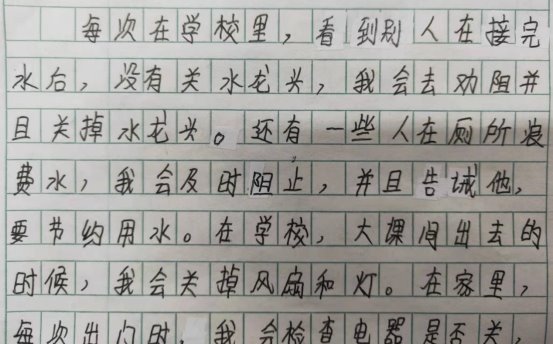 每次在学校里，看到别人在接完
水后，没有关水龙头，我会去劝阻并
且关掉水龙头。还有一些人在厕所浪
费水，我会及时阻止，并且告诫他，
要节约用水。在学校，大课间出去的
时候，我会关掉风扇和灯。在家里，
每次出门时，我会检查电器是否关，